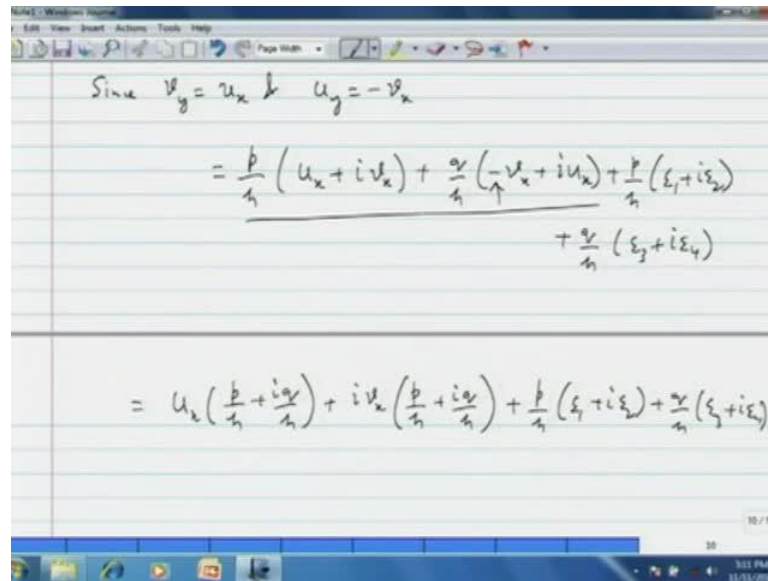 Note1 - Windows Journal
Edit View Insert Actions Tools Help
Page Width
Since v_y = u_x & u_y = -v_x
= p/h (u_x + i v_x) + q/h (-v_x + i u_x) + p/h (ε_1 + iε_2)
+ q/h (ε_3 + iε_4)
= u_x (p/h + iq/h) + i v_x (p/h + iq/h) + p/h (ε_1 + iε_2) + q/h (ε_3 + iε_4)
10
3:11 PM